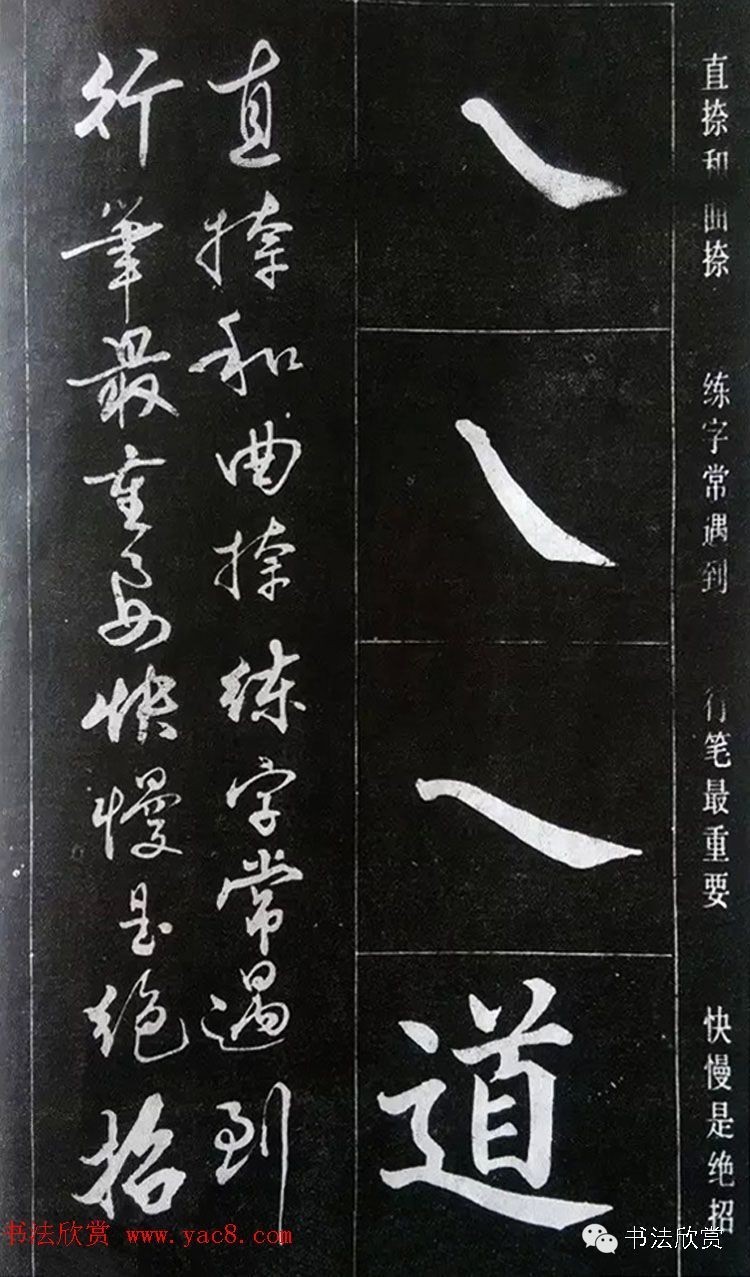 直捺和曲捺
练字常遇到
行笔最重要
快慢是绝招
道
直捺和曲捺练字常遇到
行笔最重要快慢是绝招
书法欣赏 www.yac8.com
书法欣赏